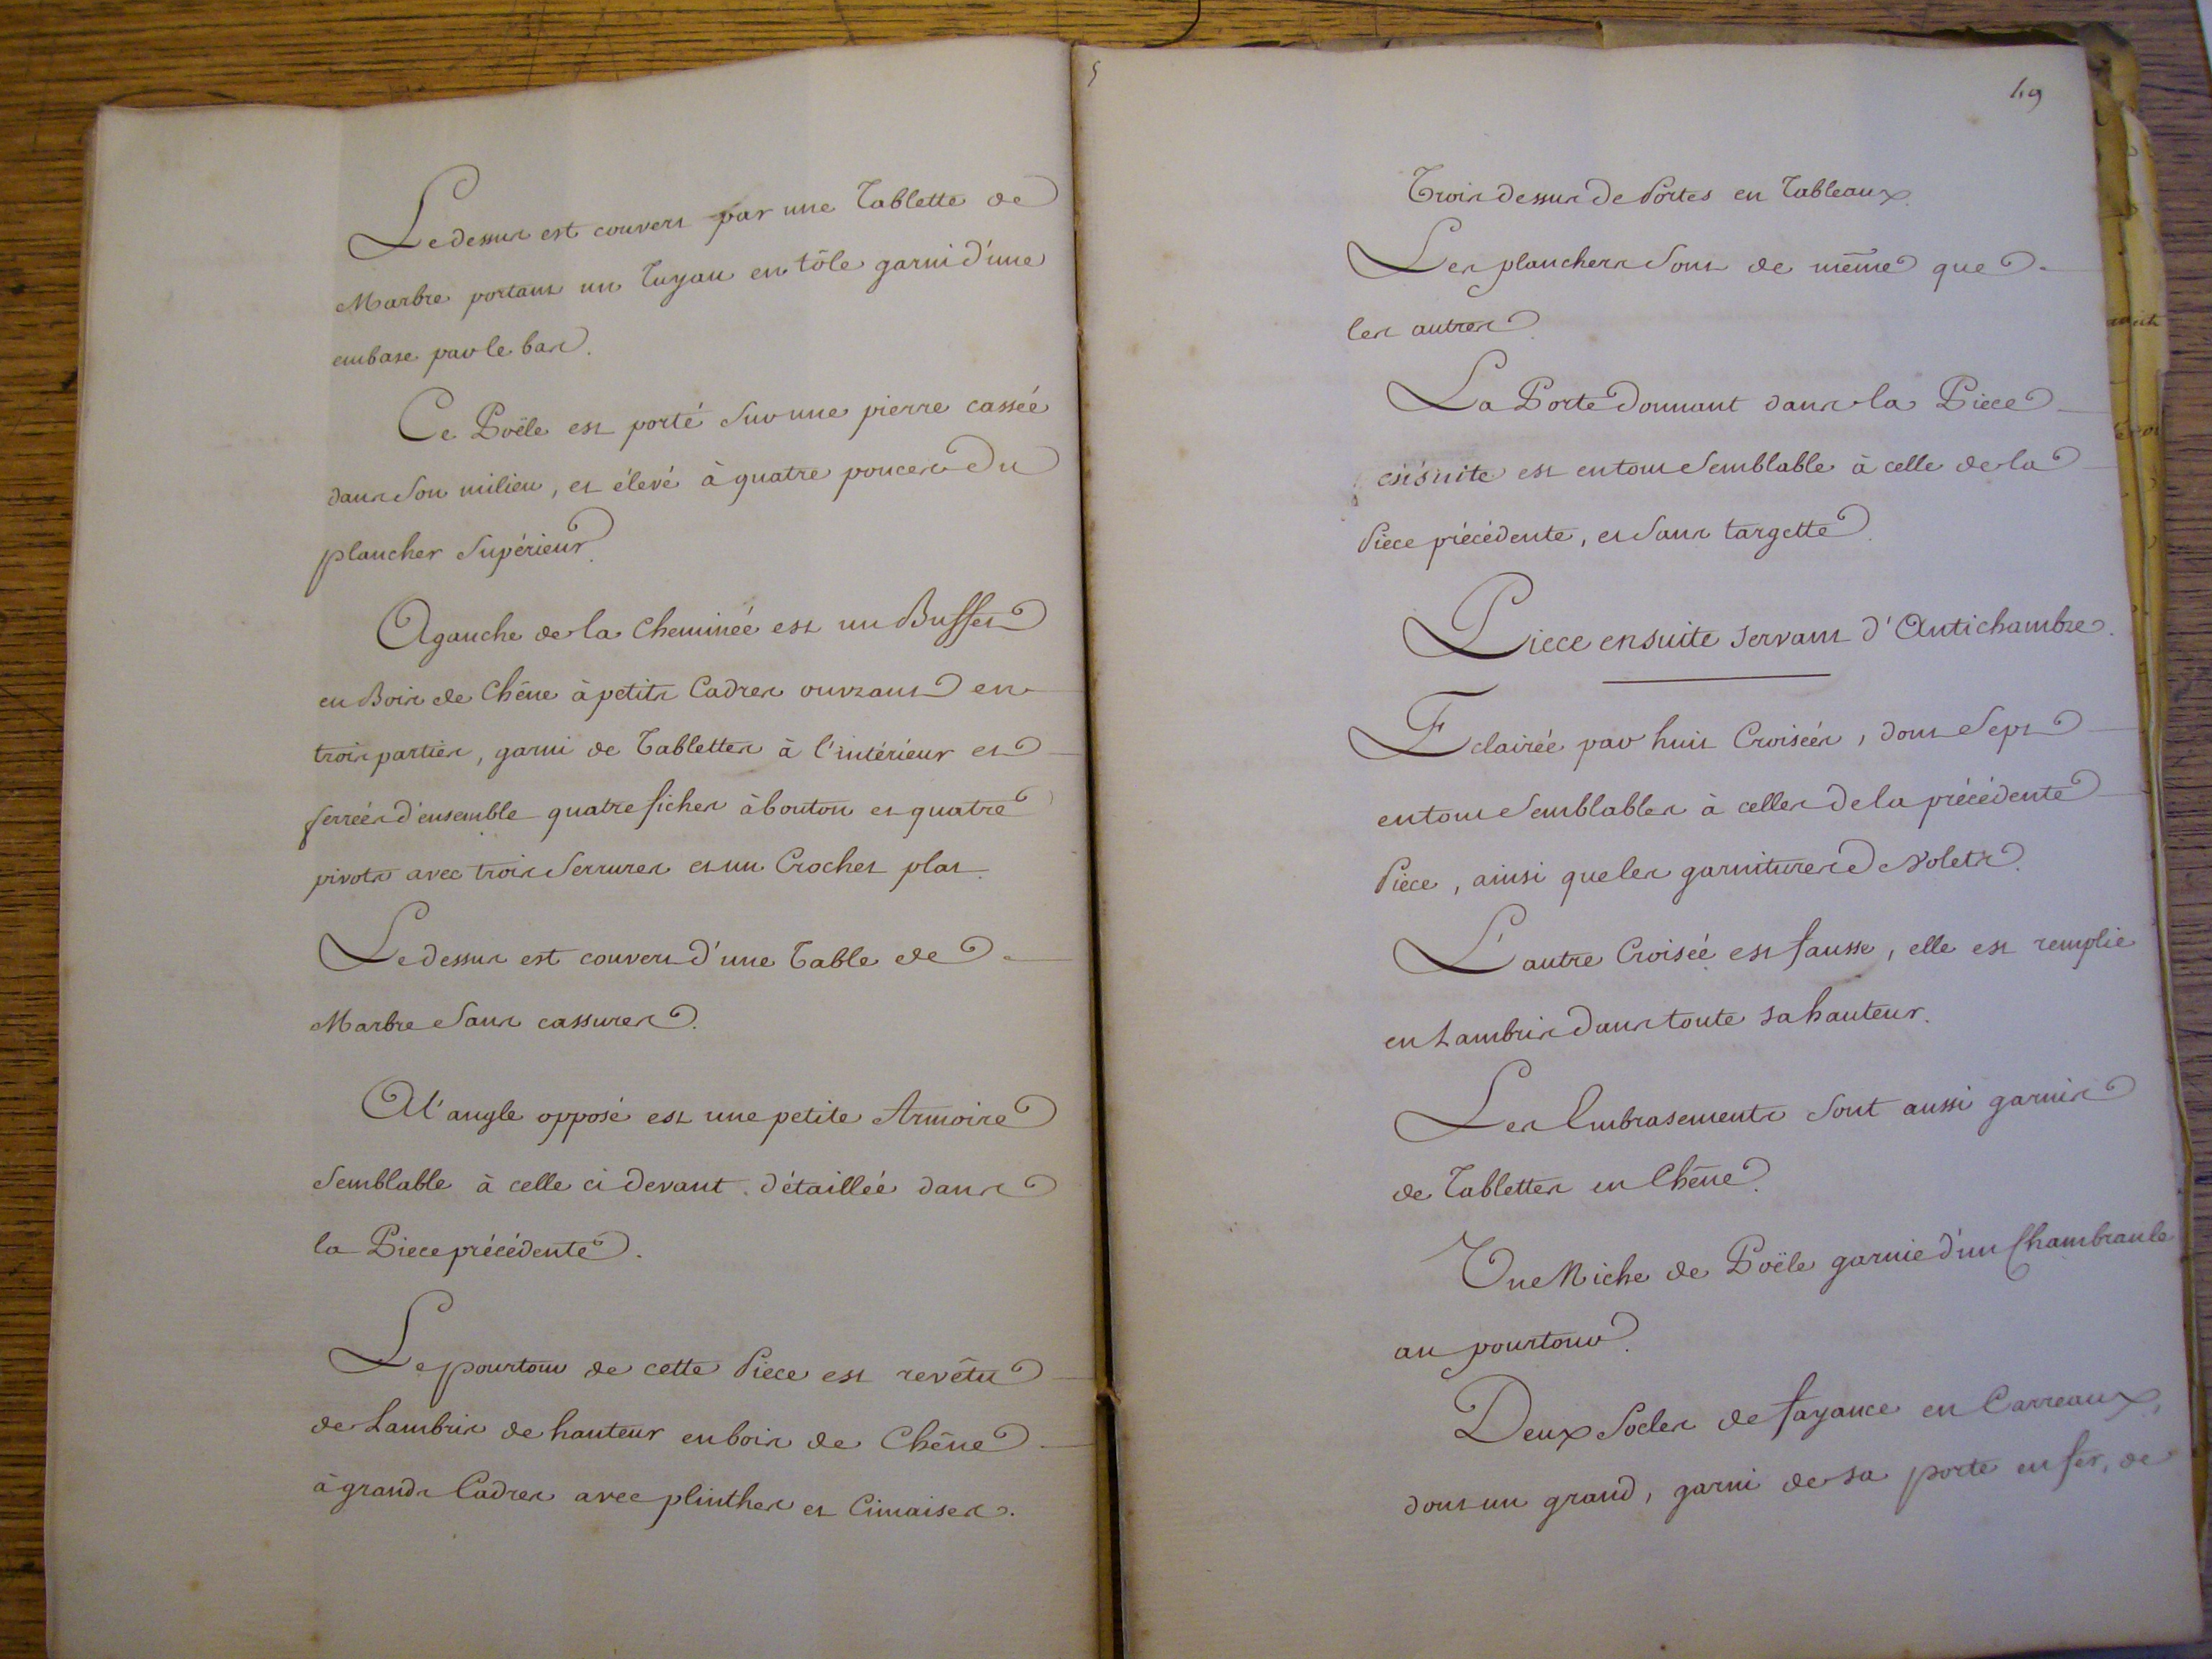 Le dessus est couvert par une Tablette de
Marbre portant un Tuyau en tôle garni d'une
embase par le bas.
Ce Poële est porté sur une pierre cassée
dans son milieu, et élevé à quatre pouces du
plancher Supérieur.
A gauche de la Cheminée est un Buffet
en Bois de Chêne à petits Cadres ouvrant en
trois parties, garni de Tablettes à l'intérieur et
ferrées d'ensemble quatre fiches à bouton et quatre
pivots avec trois Serrures et un Crochet plat.
Le dessus est couvert d'une Table de
Marbre Sans cassures.
A l'angle opposé est une petite Armoire
Semblable à celle ci devant détaillée dans
la Piece précédente.
Le pourtour de cette Piece est revêtu
de Lambris de hauteur en bois de Chêne
à grands Cadres avec plinthes et Cimaises.
49
Trois dessus de Portes en Tableaux.
Les planchers Sont de même que
les autres.
La Porte donnant dans la Piece
ensuite est en tout Semblable à celle de la
Piece précédente, et Sans targette.
Piece ensuite servant d'Antichambre.
Eclairée par huit Croisées, dont Sept
en tout Semblables à celles de la précédente
Piece, ainsi que les garnitures et Volets.
L'autre Croisée est fausse, elle est remplie
en Lambris dans toute sa hauteur.
Les Embrasements Sont aussi garnis
de Tablettes en Chêne.
Une Niche de Poële garnie d'un Chambranle
au pourtour.
Deux Socles de fayance en Carreaux,
dont un grand, garni de sa porte en fer, de